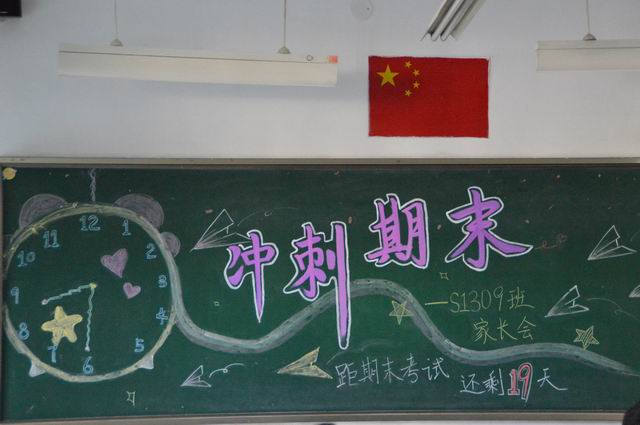 12
11
1
10
2
9
3
8
4
7
5
6
冲刺期末
—S1309班
家长会
距期末考试 还剩19天